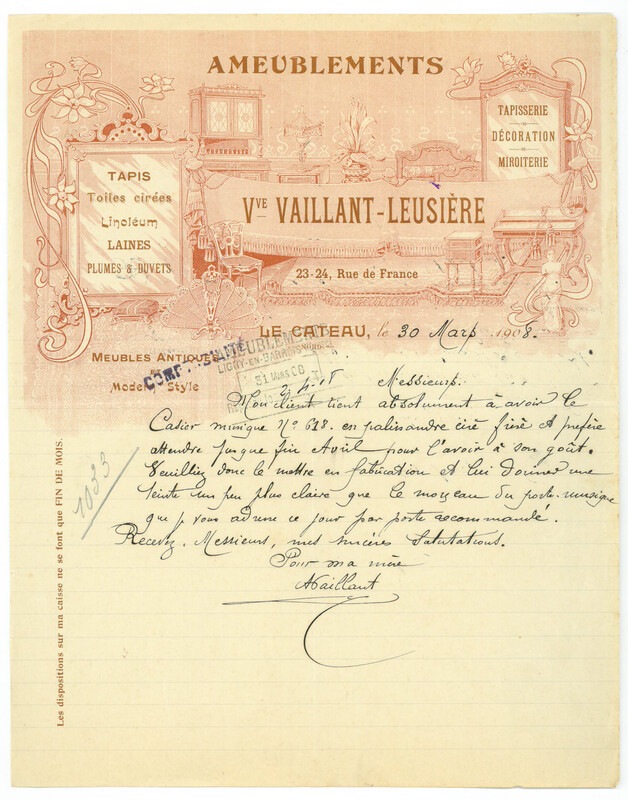 AMEUBLEMENTS
TAPISSERIE
DÉCORATION
MIROITERIE
TAPIS
Toiles cirées
Linoléum
LAINES
PLUMES & DUVETS
Vve VAILLANT-LEUSIÈRE
23-24, Rue de France
LE CATEAU, le 30 Mars 1908.
MEUBLES ANTIQUES
Style
COMPTABILITÉ
LIGNY-EN-BARROIS
31 MARS 08
2-4-08
Messieurs.
Mon client tient absolument à avoir le
Casier musique No 628. en palissandre ciré frisé et préfère
attendre jusque fin Avril pour l'avoir à son goût.
Veuillez donc le mettre en fabrication et lui donner une
teinte un peu plus claire que le morceau du porte-musique
que je vous adresse ce jour par poste recommandé.
Recevez, Messieurs, mes sincères salutations.
Pour ma mère
AVaillant
1033
Les dispositions sur ma caisse ne se font que FIN DE MOIS.